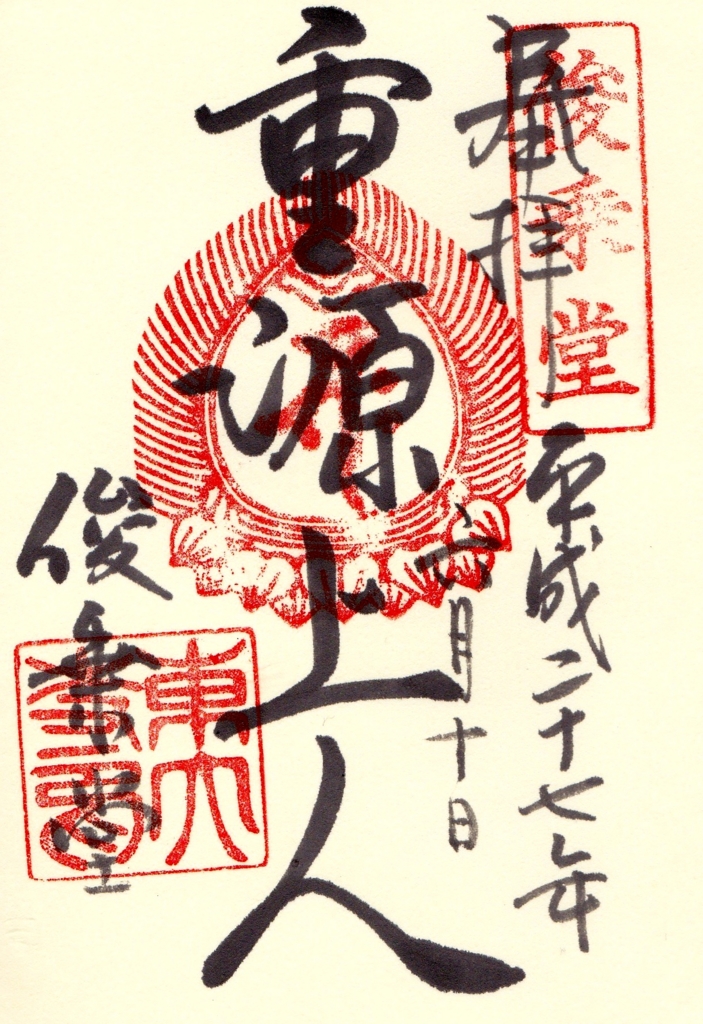 俊乗堂
奉拝
平成二十七年
六月十日
重源上人
俊乗堂
東大